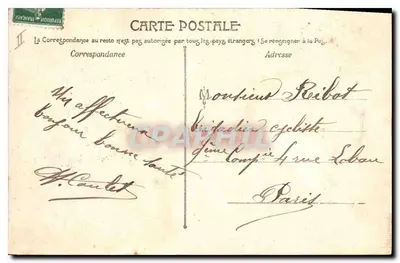 CARTE POSTALE
La Correspondance au recto n'est pas autorisée par tous les pays étrangers (Se renseigner à la Poste)
Correspondance
Adresse
II
affectueux
bonjour bonne santé
Monsieur Ribot
brigadier cycliste
Comp ie 4 rue Lobau
Paris